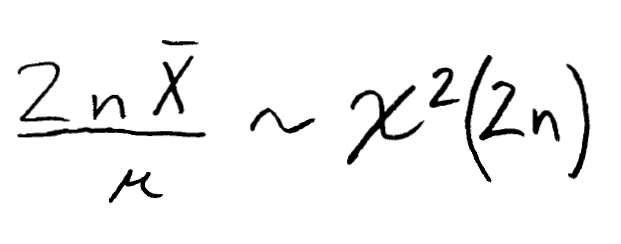 \frac{2n\bar{X}}{\mu} \sim \chi^2(2n)